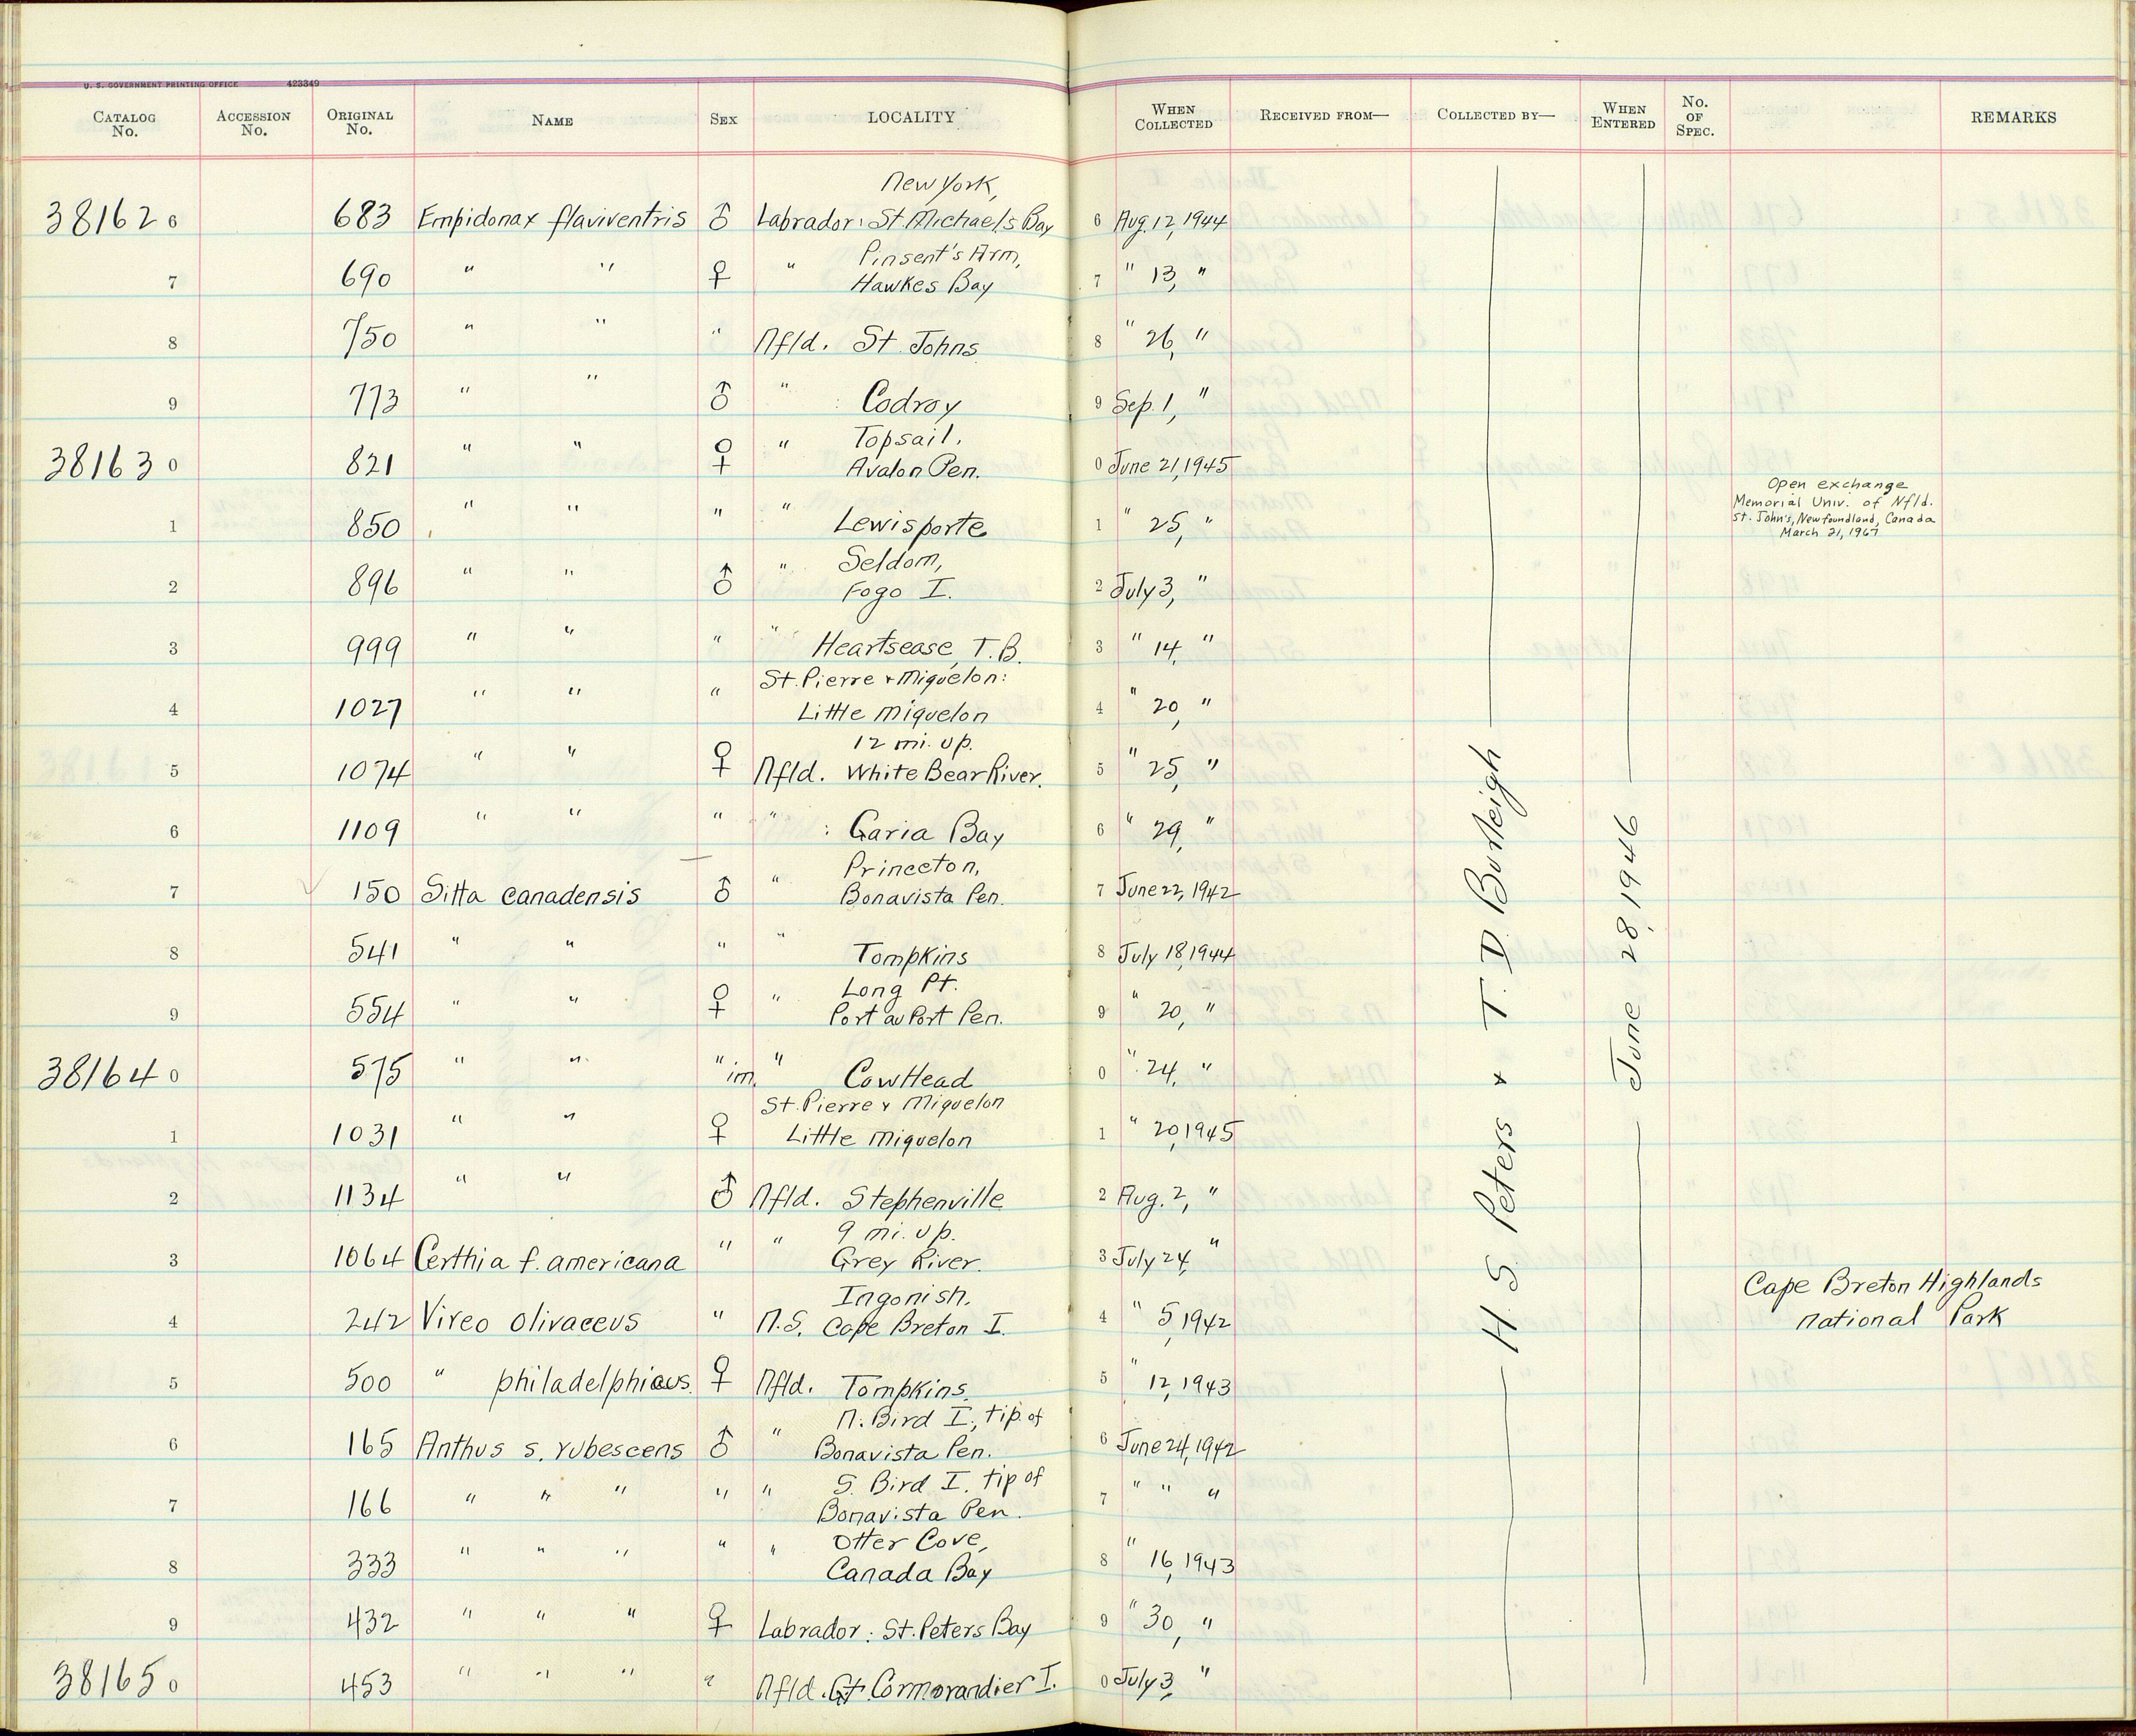 U. S. GOVERNMENT PRINTING OFFICE 423349
CATALOG No. ACCESSION No. ORIGINAL No. NAME SEX LOCALITY WHEN COLLECTED RECEIVED FROM— COLLECTED BY— WHEN ENTERED No. OF SPEC. REMARKS
New York,
381626 683 Empidonax flaviventris ♂ Labrador: St Michaels Bay 6 Aug. 12, 1944
Pinsent's Arm,
7 690 " " ♀ " Hawkes Bay 7 " 13, "
8 750 " " " Nfld. St. Johns 8 " 26, "
9 773 " " ♂ " : Codroy 9 Sep. 1, "
Topsail.
381630 821 " " ♀ " Avalon Pen. 0 June 21, 1945
Open exchange
Memorial Univ. of Nfld.
St. John's, Newfoundland, Canada
March 21, 1967
1 850 " " " " Lewisporte 1 " 25, "
Seldom,
2 896 " " ♂ " Fogo I. 2 July 3, "
3 999 " " " " Heartsease, T.B. 3 " 14, "
St. Pierre & Miquelon:
4 1027 " " " Little Miquelon 4 " 20, "
12 mi. up.
5 1074 " " ♀ Nfld. White Bear River. 5 " 25, "
6 1109 " " " " : Garia Bay 6 " 29, "
Princeton,
7 150 Sitta canadensis ♂ " Bonavista Pen. 7 June 22, 1942
8 541 " " " " Tompkins 8 July 18, 1944
Long Pt.
9 554 " " ♀ " Port au Port Pen. 9 " 20, "
381640 575 " " " im. " Cow Head 0 " 24, "
St. Pierre & Miquelon
1 1031 " " ♀ Little Miquelon 1 " 20, 1945
2 1134 " " ♂ Nfld. Stephenville 2 Aug. 2, "
9 mi. up.
3 1064 Certhia f. americana " " Grey River. 3 July 24, "
Ingonish.
4 242 Vireo olivaceus " N.S. Cape Breton I. 4 " 5, 1942 Cape Breton Highlands
National Park
5 500 " philadelphicus. ♀ Nfld. Tompkins 5 " 12, 1943
N. Bird I., tip of
6 165 Anthus s. rubescens ♂ " Bonavista Pen. 6 June 24, 1942
S. Bird I. tip of
7 166 " " " " " Bonavista Pen. 7 " " "
Otter Cove,
8 333 " " " " " Canada Bay 8 " 16, 1943
9 432 " " " ♀ Labrador: St. Peters Bay 9 " 30, "
381650 453 " " " " Nfld. Gt. Cormorandier I. 0 July 3, "
H. S. Peters & T. D. Burleigh
June 28, 1946